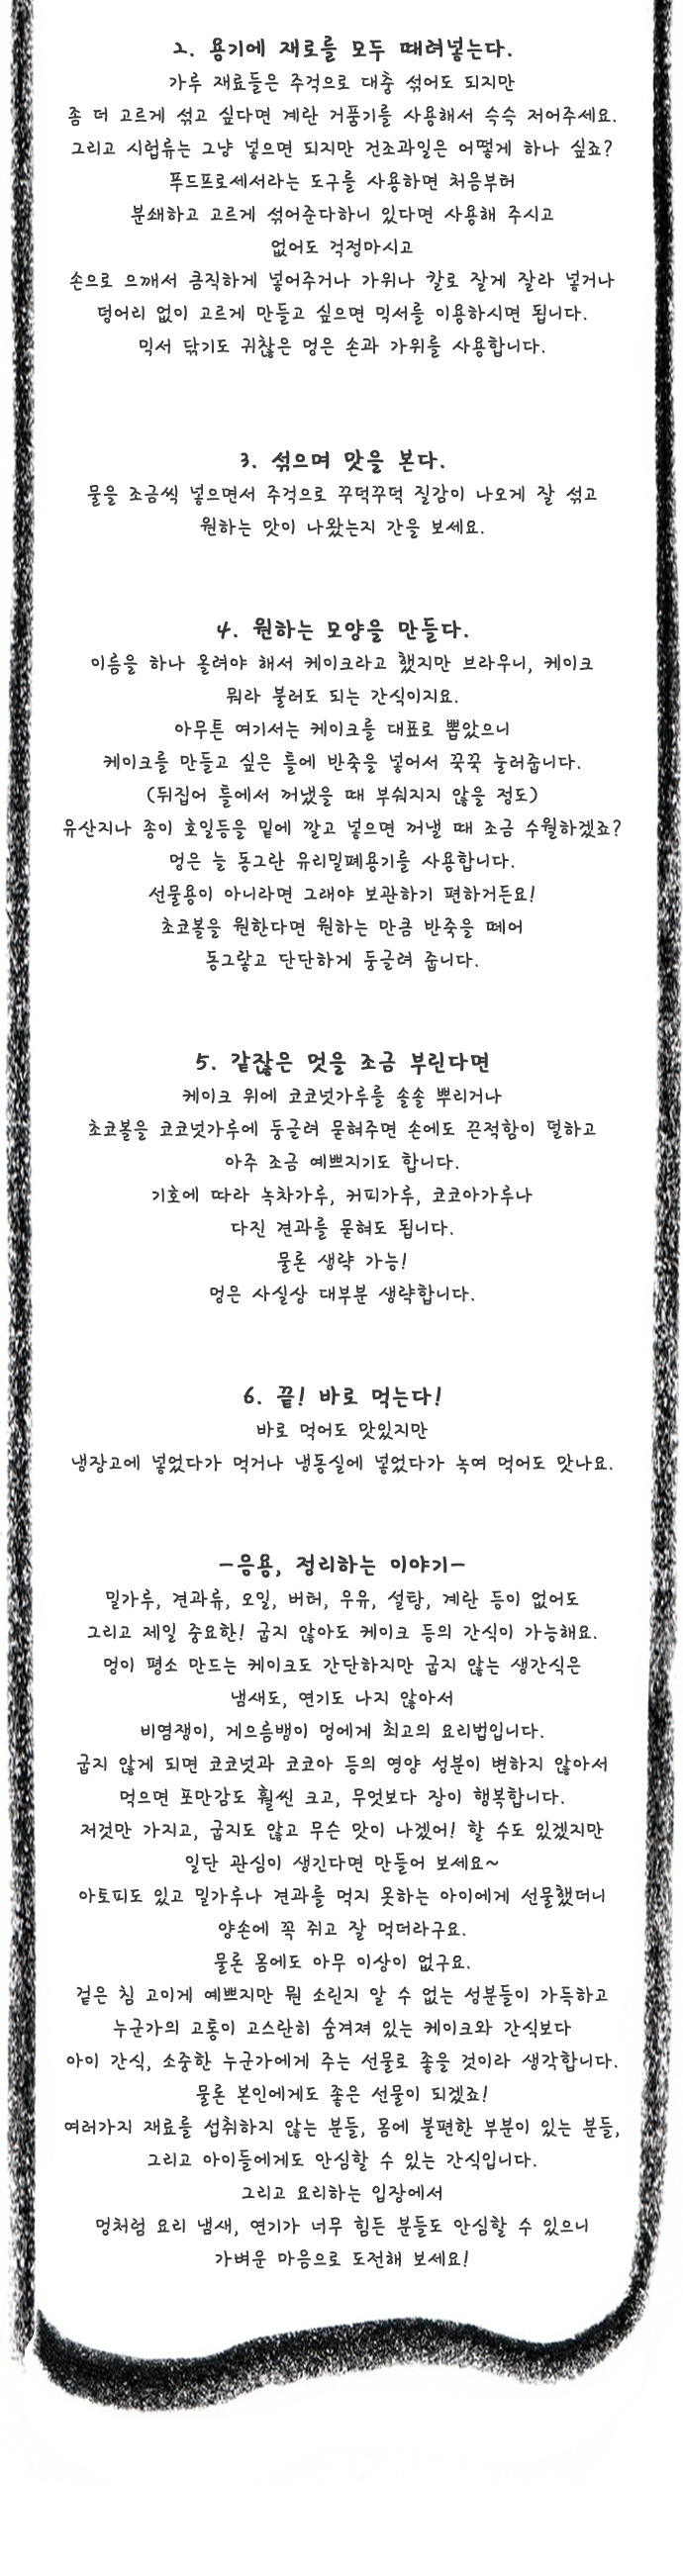 2. 용기에 재로를 모두 때려넣는다.
가루 재료들은 주걱으로 대충 섞어도 되지만
좀 더 고르게 섞고 싶다면 계란 거품기를 사용해서 슥슥 저어주세요.
그리고 시럽류는 그냥 넣으면 되지만 건조과일은 어떻게 하나 싶죠?
푸드프로세서라는 도구를 사용하면 처음부터
분쇄하고 고르게 섞어준다하니 있다면 사용해 주시고
없어도 걱정마시고
손으로 으깨서 큼직하게 넣어주거나 가위나 칼로 잘게 잘라 넣거나
덩어리 없이 고르게 만들고 싶으면 믹서를 이용하시면 됩니다.
믹서 닦기도 귀찮은 멍은 손과 가위를 사용합니다.
3. 섞으며 맛을 본다.
물을 조금씩 넣으면서 주걱으로 꾸덕꾸덕 질감이 나오게 잘 섞고
원하는 맛이 나왔는지 간을 보세요.
4. 원하는 모양을 만들다.
이름을 하나 올려야 해서 케이크라고 했지만 브라우니, 케이크
뭐라 불러도 되는 간식이지요.
아무튼 여기서는 케이크를 대표로 뽑았으니
케이크를 만들고 싶은 틀에 반죽을 넣어서 꾹꾹 눌러줍니다.
(뒤집어 틀에서 꺼냈을 때 부숴지지 않을 정도)
유산지나 종이 호일등을 밑에 깔고 넣으면 꺼낼 때 조금 수월하겠죠?
멍은 늘 동그란 유리밀폐용기를 사용합니다.
선물용이 아니라면 그래야 보관하기 편하거든요!
초코볼을 원한다면 원하는 만큼 반죽을 떼어
동그랗고 단단하게 둥글려 줍니다.
5. 같잖은 멋을 조금 부린다면
케이크 위에 코코넛가루를 솔솔 뿌리거나
초코볼을 코코넛가루에 둥글려 묻혀주면 손에도 끈적함이 덜하고
아주 조금 예쁘지기도 합니다.
기호에 따라 녹차가루, 커피가루, 코코아가루나
다진 견과를 묻혀도 됩니다.
물론 생략 가능!
멍은 사실상 대부분 생략합니다.
6. 끝! 바로 먹는다!
바로 먹어도 맛있지만
냉장고에 넣었다가 먹거나 냉동실에 넣었다가 녹여 먹어도 맛나요.
-응용, 정리하는 이야기-
밀가루, 견과류, 오일, 버터, 우유, 설탕, 계란 등이 없어도
그리고 제일 중요한! 굽지 않아도 케이크 등의 간식이 가능해요.
멍이 평소 만드는 케이크도 간단하지만 굽지 않는 생간식은
냄새도, 연기도 나지 않아서
비염쟁이, 게으름뱅이 멍에게 최고의 요리법입니다.
굽지 않게 되면 코코넛과 코코아 등의 영양 성분이 변하지 않아서
먹으면 포만감도 훨씬 크고, 무엇보다 장이 행복합니다.
저것만 가지고, 굽지도 않고 무슨 맛이 나겠어! 할 수도 있겠지만
일단 관심이 생긴다면 만들어 보세요~
아토피도 있고 밀가루나 견과를 먹지 못하는 아이에게 선물했더니
양손에 꼭 쥐고 잘 먹더라구요.
물론 몸에도 아무 이상이 없구요.
겉은 침 고이게 예쁘지만 뭔 소린지 알 수 없는 성분들이 가득하고
누군가의 고통이 고스란히 숨겨져 있는 케이크와 간식보다
아이 간식, 소중한 누군가에게 주는 선물로 좋을 것이라 생각합니다.
물론 본인에게도 좋은 선물이 되겠죠!
여러가지 재료를 섭취하지 않는 분들, 몸에 불편한 부분이 있는 분들,
그리고 아이들에게도 안심할 수 있는 간식입니다.
그리고 요리하는 입장에서
멍처럼 요리 냄새, 연기가 너무 힘든 분들도 안심할 수 있으니
가벼운 마음으로 도전해 보세요!